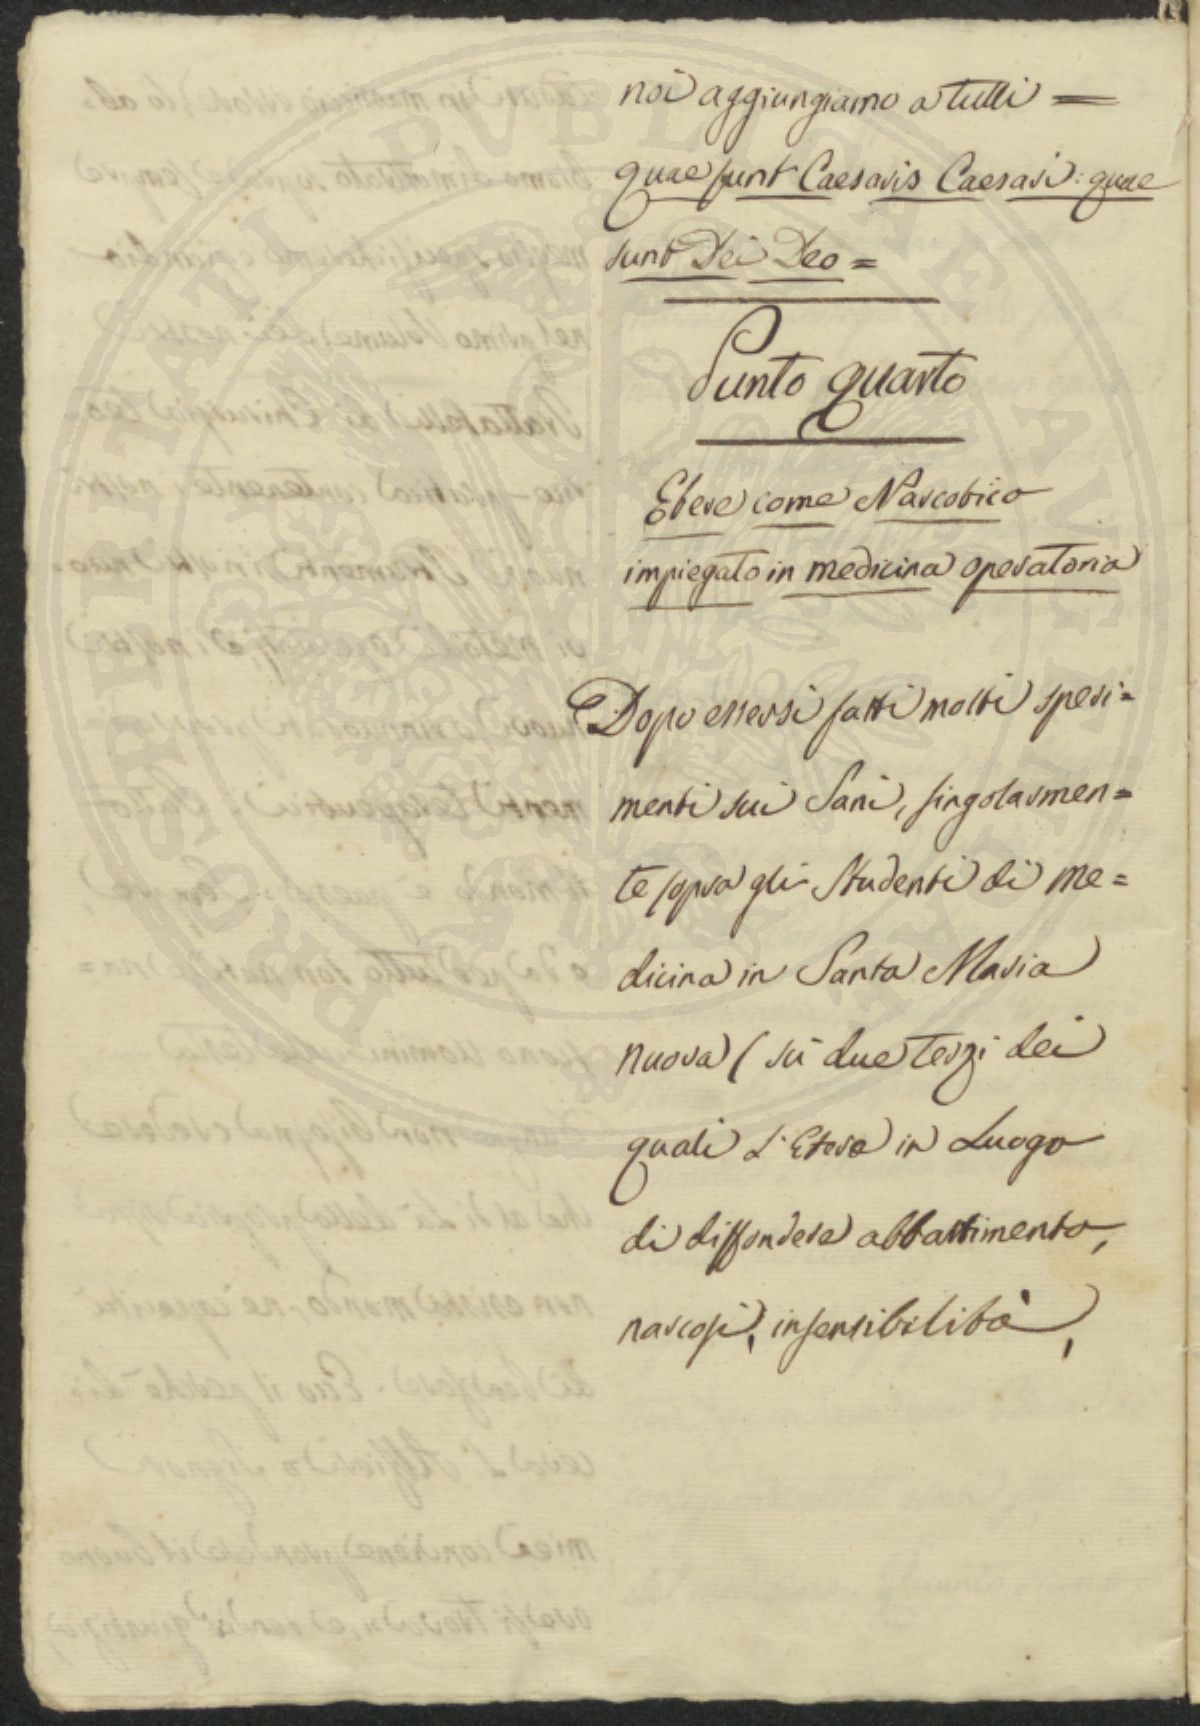 noi aggiungiamo a tutti =
quae sunt Caesaris Caesari: quae
sunt Dei Deo =
Punto quarto
Etere come Narcotico
impiegato in medicina operatoria
Dopo essersi fatti molti speri=
menti sui Sani, singolarmen=
te sopra gli Studenti di me=
dicina in Santa Maria
nuova (sù due terzi dei
quali L'Etere in Luogo
di diffondere abbattimento,
narcosi, insensibilità,
PROSPERITATI PVBLICAE AVGENDAE